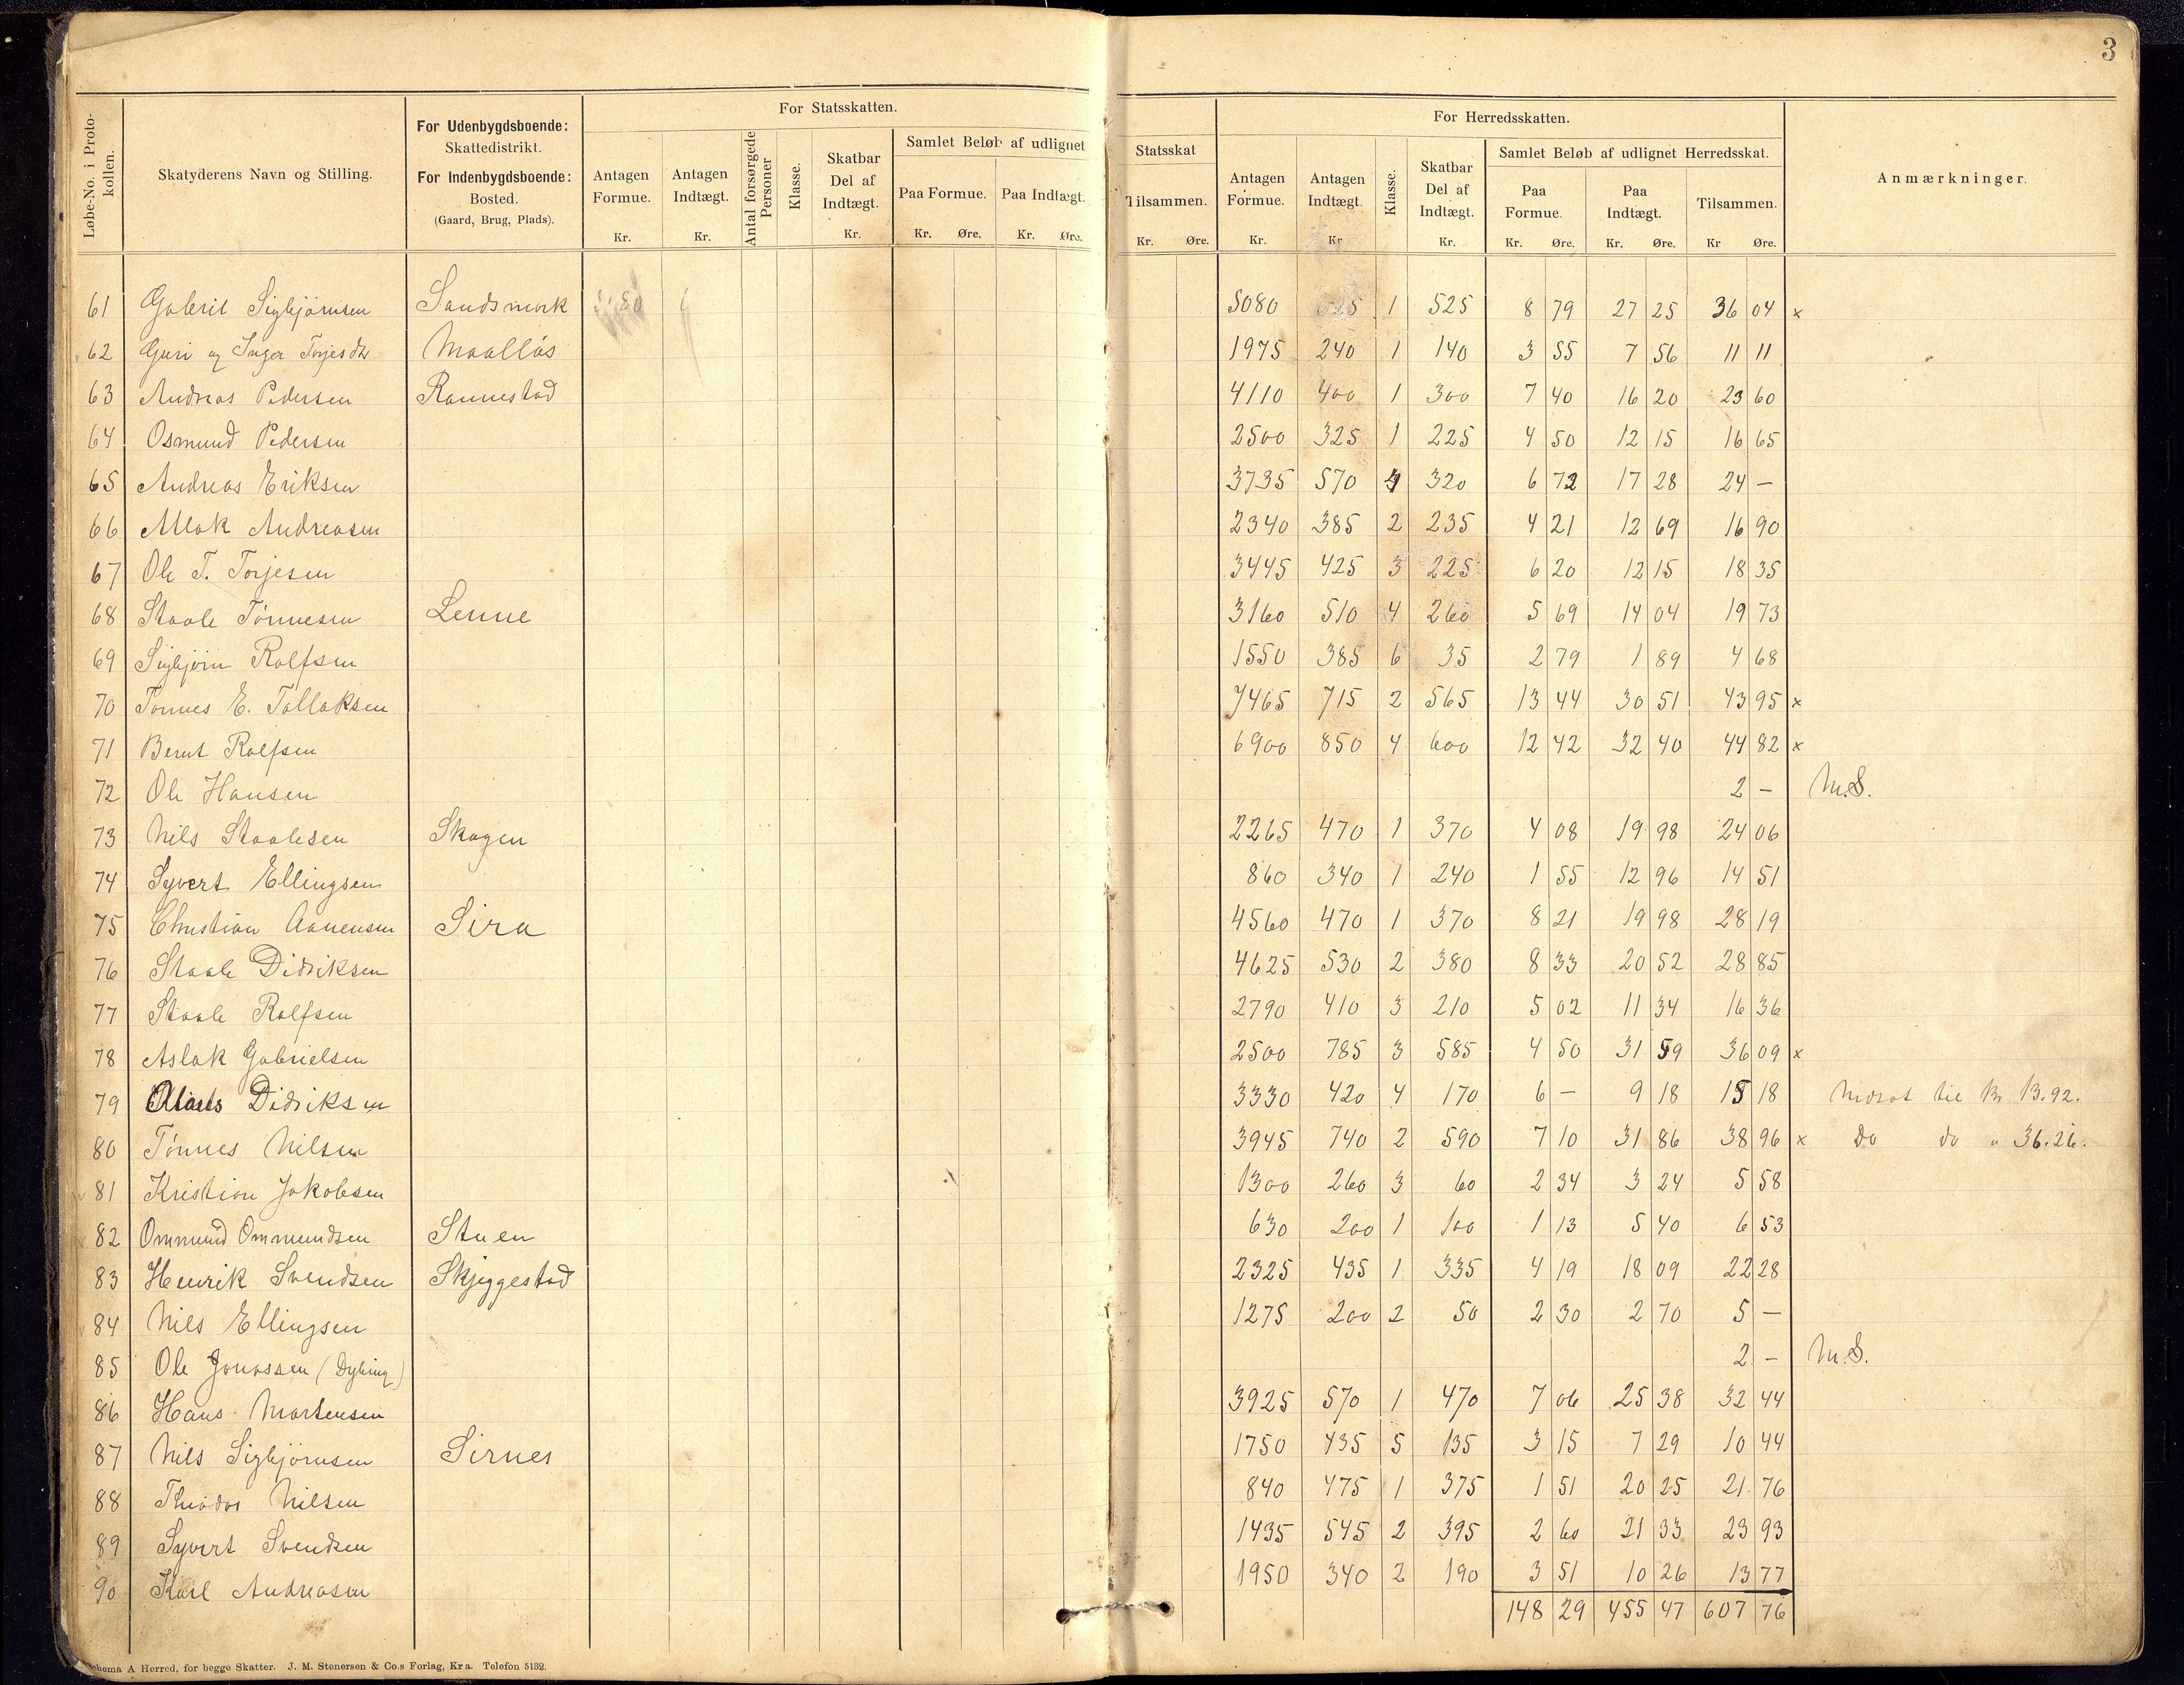 3
Løbe-No. i Protokollen. | Skatyderens Navn og Stilling. | For Udenbygdsboende: Skattedistrikt. For Indenbygdsboende: Bosted. (Gaard, Brug, Plads). | For Statsskatten. | For Herredsskatten. | Anmærkninger.
Antagen Formue. Kr. | Antagen Indtægt. Kr. | Antal forsørgede Personer | Klasse. | Skatbar Del af Indtægt. Kr. | Samlet Beløb af udlignet Statsskat | Paa Formue. Kr. Øre. | Paa Indtægt. Kr. Øre. | Tilsammen. Kr. Øre.
Antagen Formue. Kr. | Antagen Indtægt. Kr | Klasse. | Skatbar Del af Indtægt. Kr. | Samlet Beløb af udlignet Herredsskat. | Paa Formue. Kr. Øre. | Paa Indtægt. Kr. Øre. | Tilsammen. Kr Øre.
61 Gabriel Sigbjørnsen Sandsmark 5080 625 1 525 8 79 27 25 36 04 x
62 Guri og Inger Torjesdtr Maallås 1975 240 1 140 3 55 7 56 11 11
63 Andreas Pedersen Rannestad 4110 400 1 300 7 40 16 20 23 60
64 Osmund Pedersen 2500 325 1 225 4 50 12 15 16 65
65 Andreas Eriksen 3735 570 4 320 6 72 17 28 24 —
66 Atlak Andreasen 2340 385 2 235 4 21 12 69 16 90
67 Ole T. Torjesen 3445 425 3 225 6 20 12 15 18 35
68 Staale Tønnesen Lenne 3160 510 4 260 5 69 14 04 19 73
69 Sigbjørn Rolfsen 1550 385 6 35 2 79 1 89 4 68
70 Tønnes E. Tallaksen 7465 715 2 565 13 44 30 51 43 95 x
71 Bernt Rolfsen 6900 850 4 600 12 42 32 40 44 82 x
72 Ole Hansen 2 — M.S.
73 Nils Staalesen Skagen 2265 470 1 370 4 08 19 98 24 06
74 Syvert Ellingsen 860 340 1 240 1 55 12 96 14 51
75 Christian Aanensen Sira 4560 470 1 370 8 21 19 98 28 19
76 Staale Didriksen 4625 530 2 380 8 33 20 52 28 85
77 Staale Rolfsen 2790 410 3 210 5 02 11 34 16 36
78 Aslak Gabrielsen 2500 785 3 585 4 50 31 59 36 09 x
79 Didriksen 3330 420 4 170 6 — 9 18 15 18 Nedsat til Kr 13.92.
80 Tønnes Nilsen 3945 740 2 590 7 10 31 86 38 96 x Do do " 36.26.
81 Kristian Jakobsen 1300 260 3 60 2 34 3 24 5 58
82 Ommund Ommundsen Stuen 630 200 1 100 1 13 5 40 6 53
83 Henrik Svendsen Skjeggestad 2325 435 1 335 4 19 18 09 22 28
84 Nils Ellingsen 1275 200 2 50 2 30 2 70 5 —
85 Ole Jonassen (Dybing) 2 — M.S.
86 Hans Martensen 3925 570 1 470 7 06 25 38 32 44
87 Nils Sigbjørnsen Sirnes 1750 435 5 135 3 15 7 29 10 44
88 Theodor Nilsen 840 475 1 375 1 51 20 25 21 76
89 Syvert Svendsen 1435 545 2 395 2 60 21 33 23 93
90 Karl Andreasen 1950 340 2 190 3 51 10 26 13 77
148 29 455 47 607 76
Schema A Herred, for begge Skatter. J. M. Stenersen & Co.s Forlag, Kra. Telefon 5132.